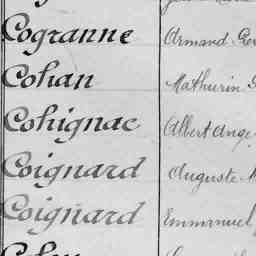 Cogranne Armand
Cohan Mathurin
Cohignac Albert Ange
Coignard Auguste
Coignard Emmanuel